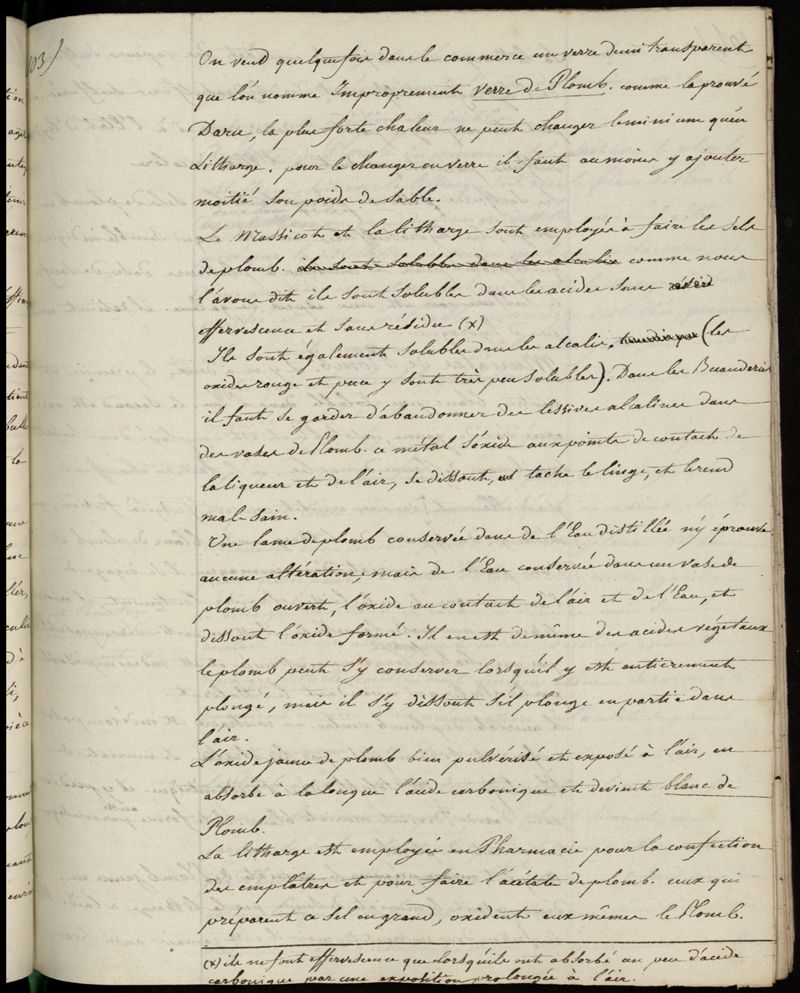 103)
On vend quelquefois dans le commerce un verre demi transparent
que l'on nomme Improprement verre de Plomb. comme la prouvé
Darcu, la plus forte chaleur ne peut changer le minium qu'en
Litharge. pour le changer en verre il faut au moins y ajouter
moitié son poids de sable.
Le Massicot et la litharge sont employés à faire les sels
de plomb. ils sont solubles dans les alcalis comme nous
l'avons dit ils sont solubles dans les acides sans résid
effervescence et sans résidu (x)
Ils sont également solubles dans les alcalis, (les
oxides rouge et puce y sont très peu solubles). Dans les Buanderies
il faut se garder d'abandonner des lessives alcalines dans
des vases de Plomb. ce métal s'oxide aux points de contact de
la liqueur et de l'air, se dissout, et tache le linge, et le rend
mal-sain.
Une lame de plomb conservée dans de l'Eau distillée n'y éprouve
aucune altération, mais de l'Eau conservée dans un vase de
plomb ouvert, l'oxide au contact de l'air et de l'Eau, et
dissout l'oxide formé. Il en est de même des acides végétaux
le plomb peut s'y conserver lorsqu'il y est entièrement
plongé, mais il s'y dissout s'il plonge en partie dans
l'air.
L'oxide jaune de plomb bien pulvérisé et exposé à l'air, en
absorbe à la longue l'acide carbonique et devient blanc de
Plomb.
La litharge est employée en Pharmacie pour la confection
des emplâtres et pour faire l'acétate de plomb. ceux qui
préparent ce sel en grand, oxident eux mêmes le Plomb.
(x) ils ne font effervescence que lorsqu'ils ont absorbé un peu d'acide
carbonique par une exposition prolongée à l'air.